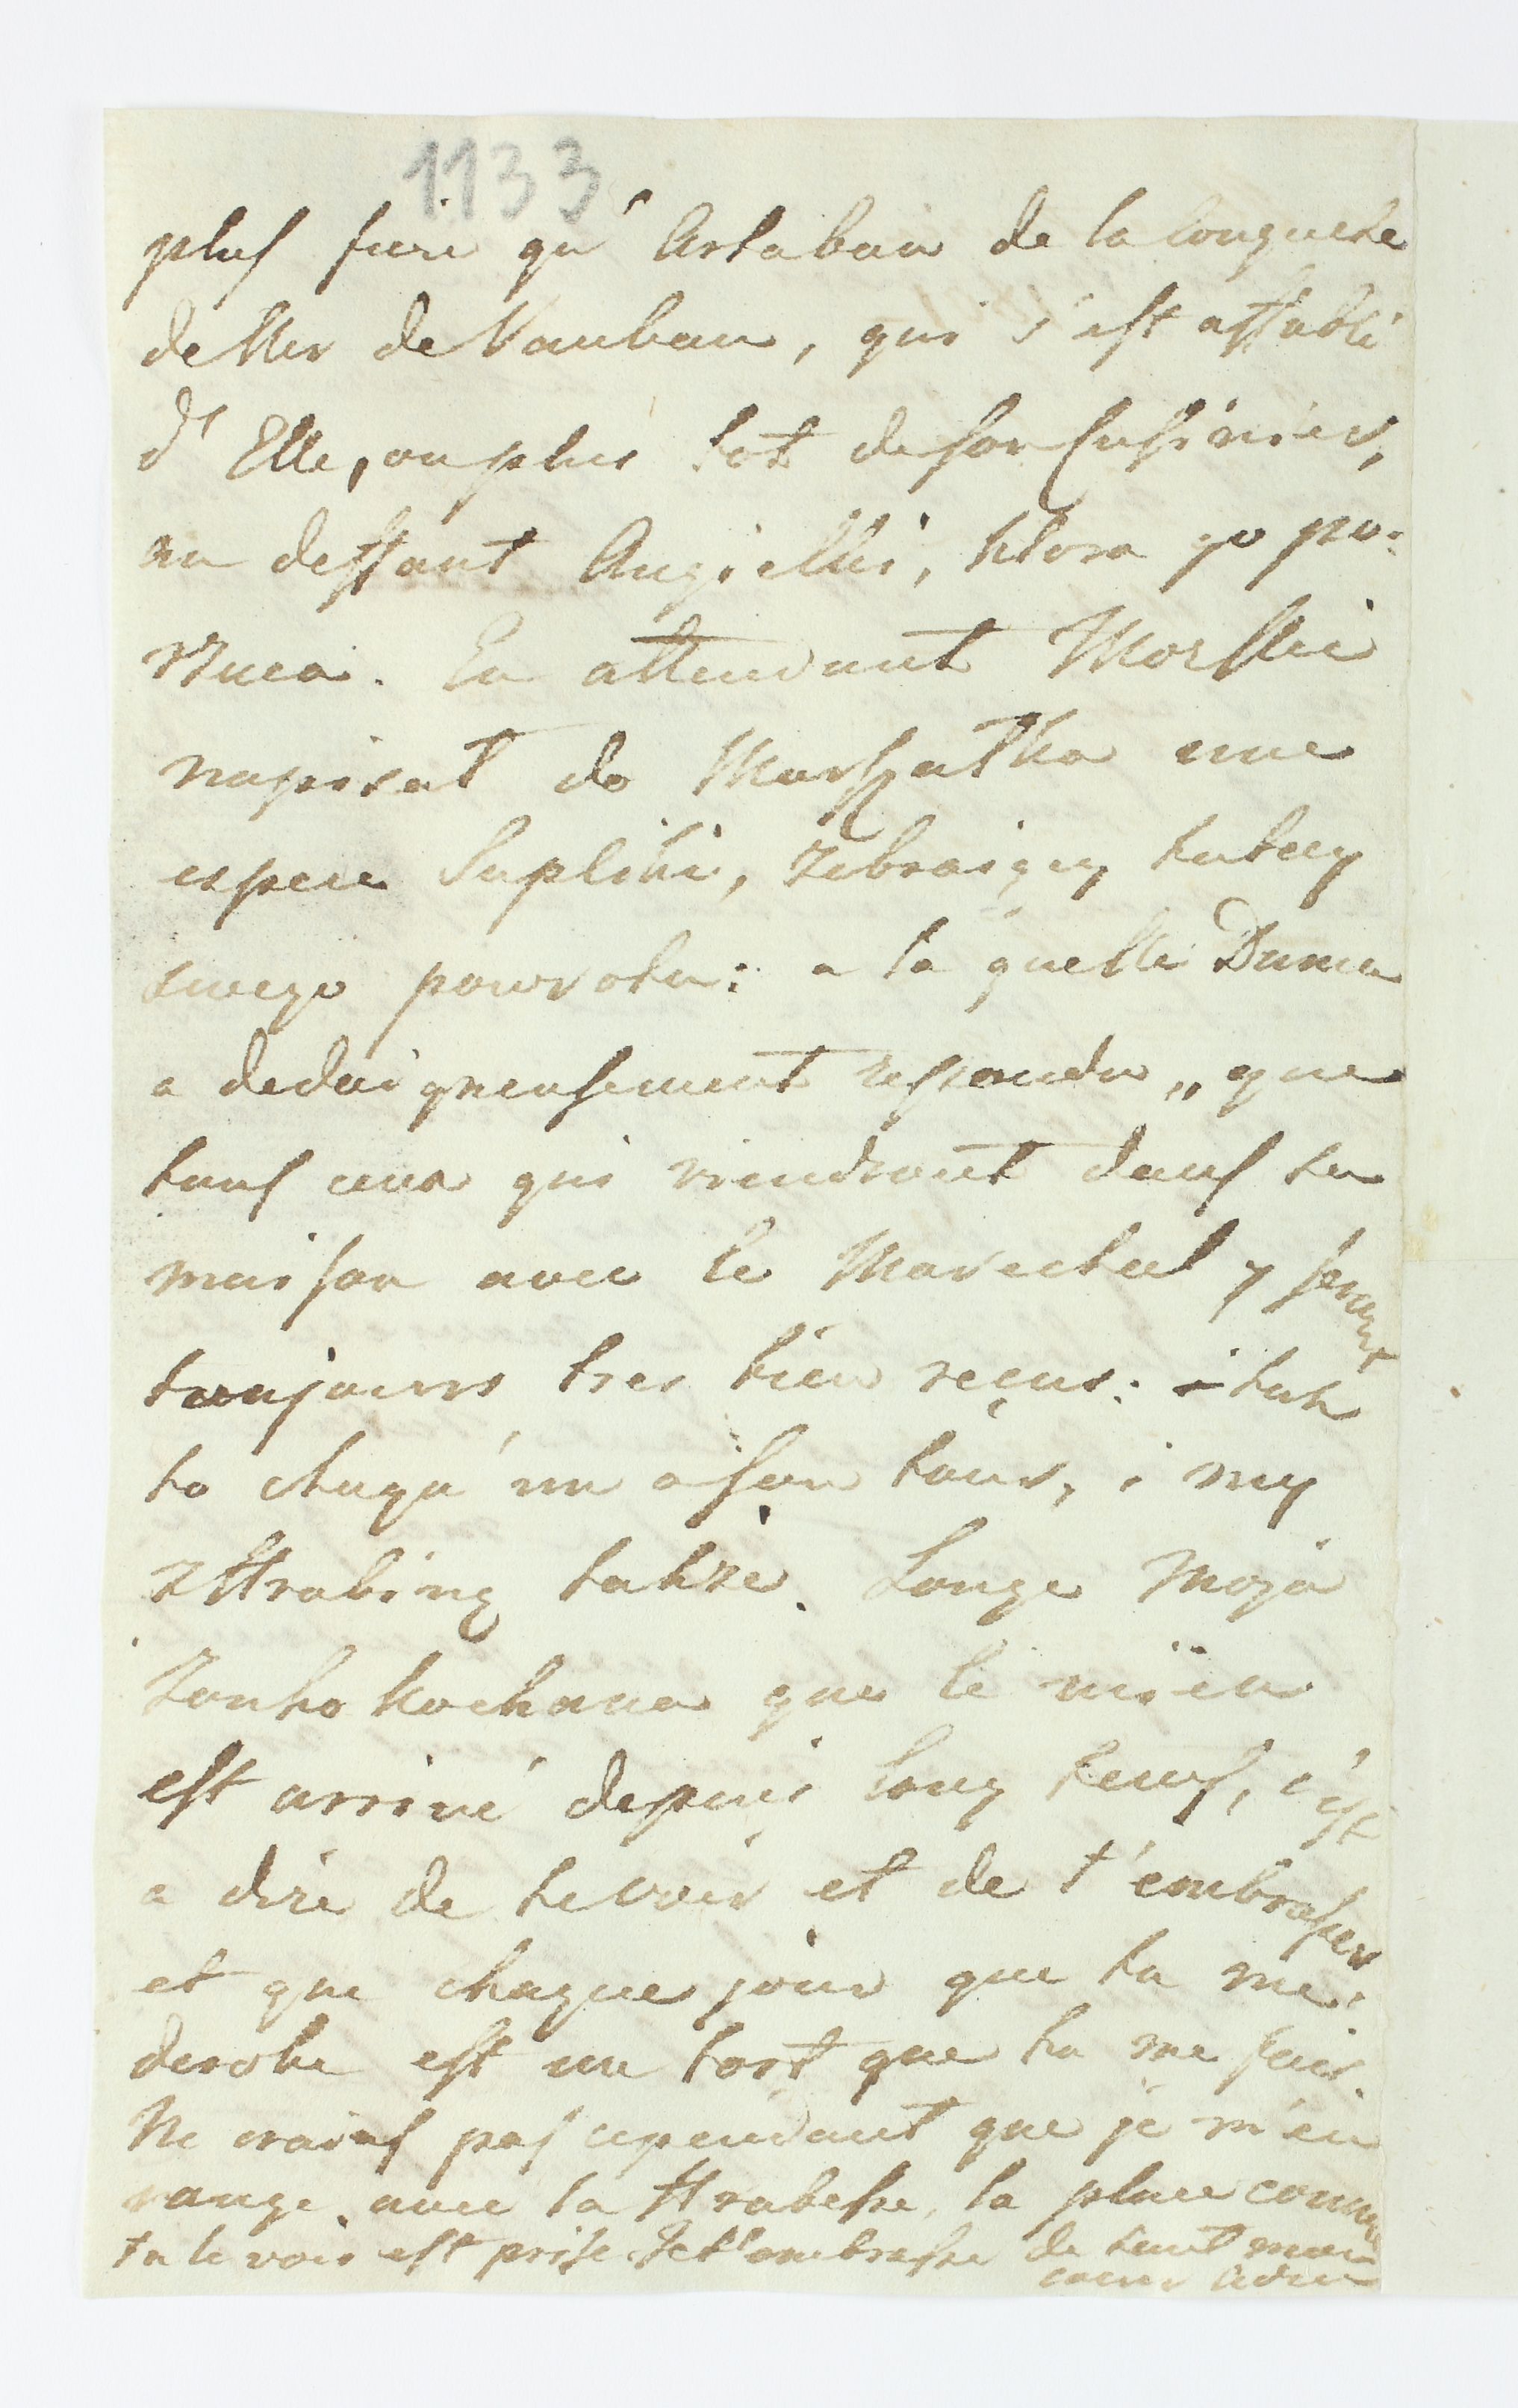 1133
plus fiere qu' Artaban de la conquete
de Mr de Vauban, qui s'est affublé
d' Elle, ou plus tot de son Cusinier,
au deffaut Angielki, ktora go po:
rzuca. En attendant Morski
napisał do Marszałka une
espece Supliki, żebrzący łaski
swego powrotu: a la quelle Dunia
a dedaigneusement repondu „que
tous ceux qui viendront dans sa
maison avec le Marechal y seront
toujours tres bien reçus: i tak
to chaqu'un a son tour, i my
z Hrabiną także. Songe Moja
Zonko kochana que le mien
est arrivé depuis long tems, c'est
a dire de te voir et de t'embrasser
et que chaque jour que tu me
derobe est un tort que tu me fais.
Ne crains pas cependant que je m'en
vange avec la Hrabesse, la place comme
tu le vois est prise. Je t'embrasse de tout mon
coeur adieu